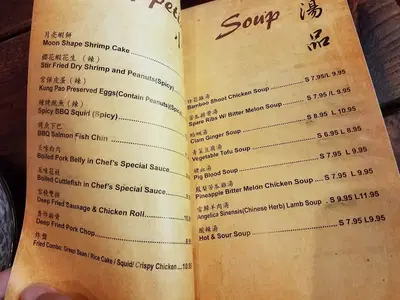 月亮蝦餅
Moon Shape Shrimp Cake
櫻花蝦花生 (辣)
Stir Fried Dry Shrimp and Peanuts(Spicy)
宮保皮蛋 (辣)
Kung Pao Preserved Eggs(Contain Peanuts)(Spicy)
Spicy BBQ Squid (Spicy)
BBQ Salmon Fish Chin
Boiled Pork Belly in Chef's Special Sauce
五味花枝
Boiled Cuttlefish in Chef's Special Sauce
Deep Fried Sausage & Chicken Roll
Deep Fried Pork Chop
炸盤
Fried Combo: Green Bean / Rice Cake / Squid/ Crispy Chicken 10.9
Soup 湯品
竹筍雞湯
Bamboo Shoot Chicken Soup S 7.95/L 9.95
苦瓜排骨湯
Spare Ribs W/ Bitter Melon Soup S 7.95/L 9.95
蛤蜊湯
Clam Ginger Soup S 8.95 L 10.95
青菜豆腐湯
Vegetable Tofu Soup S 7.95 L 9.95
豬血湯
Pig Blood Soup S 7.95 L 9.95
鳳梨苦瓜雞湯
Pineapple Bitter Melon Chicken Soup S 7.95 L 9.95
當歸羊肉湯
Angelica Sinensis(Chinese Herb) Lamb Soup S 9.95 L 11.95
酸辣湯
Hot & Sour Soup S 7.95 L 9.95